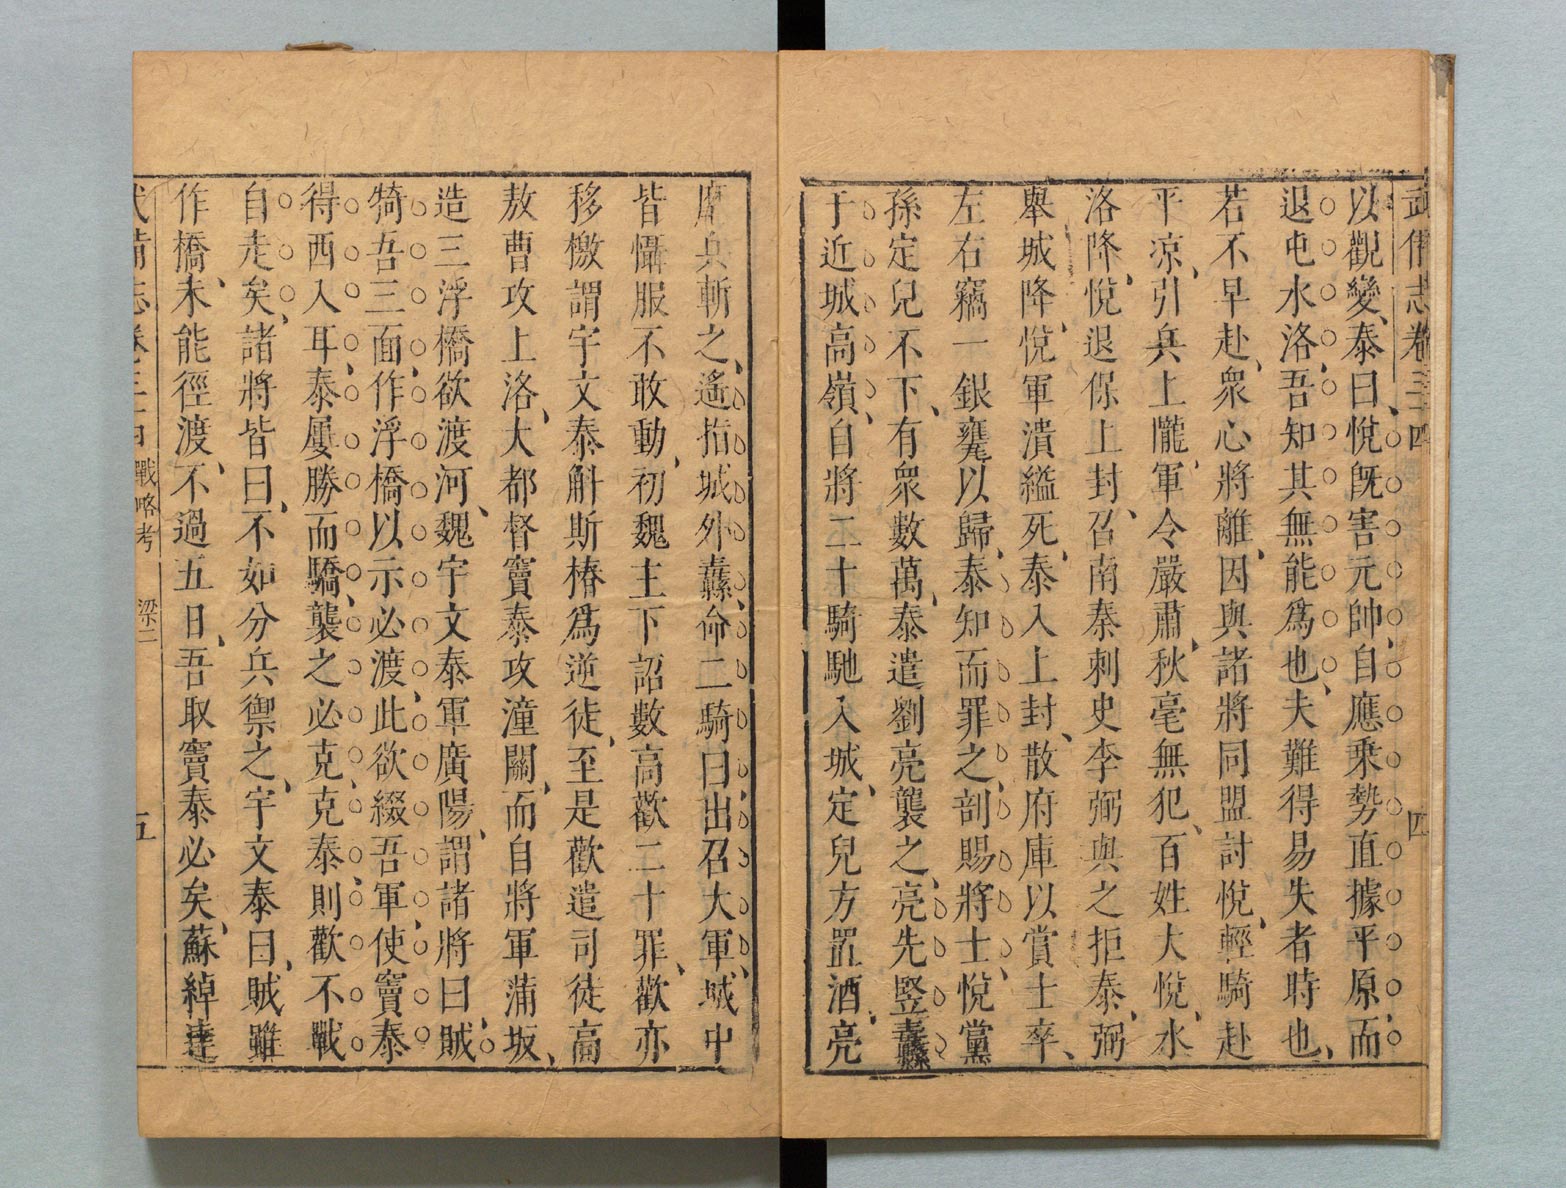 武備志卷三十四 四
以觀變泰曰悅旣害元帥自應乘勢直據平原而
退屯水洛吾知其無能爲也夫難得易失者時也
若不早赴衆心將離因與諸將同盟討悅輕騎赴
平凉引兵上隴軍令嚴肅秋毫無犯百姓大悅水
洛降悅退保上封召南秦刺史李弼與之拒泰弼
舉城降悅軍潰縊死泰入上封散府庫以賞士卒
左右竊一銀甕以歸泰知而罪之剖賜將士悅黨
孫定兒不下有衆數萬泰遣劉亮襲之亮先竪纛
于近城高嶺自將二十騎馳入城定兒方置酒亮
麾兵斬之遙指城外纛命二騎曰出召大軍城中
皆懾服不敢動初魏主下詔數高歡二十罪歡亦
移檄謂宇文泰斛斯椿爲逆徒至是歡遣司徒高
敖曹攻上洛大都督竇泰攻潼關而自將軍蒲坂
造三浮橋欲渡河魏宇文泰軍廣陽謂諸將曰賊
犄吾三面作浮橋以示必渡此欲綴吾軍使竇泰
得西入耳泰屢勝而驕襲之必克克泰則歡不戰
自走矣諸將皆曰不如分兵禦之宇文泰曰賊雖
作橋未能徑渡不過五日吾取竇泰必矣蘇綽達
武備志卷三十四 戰略考 梁二 五